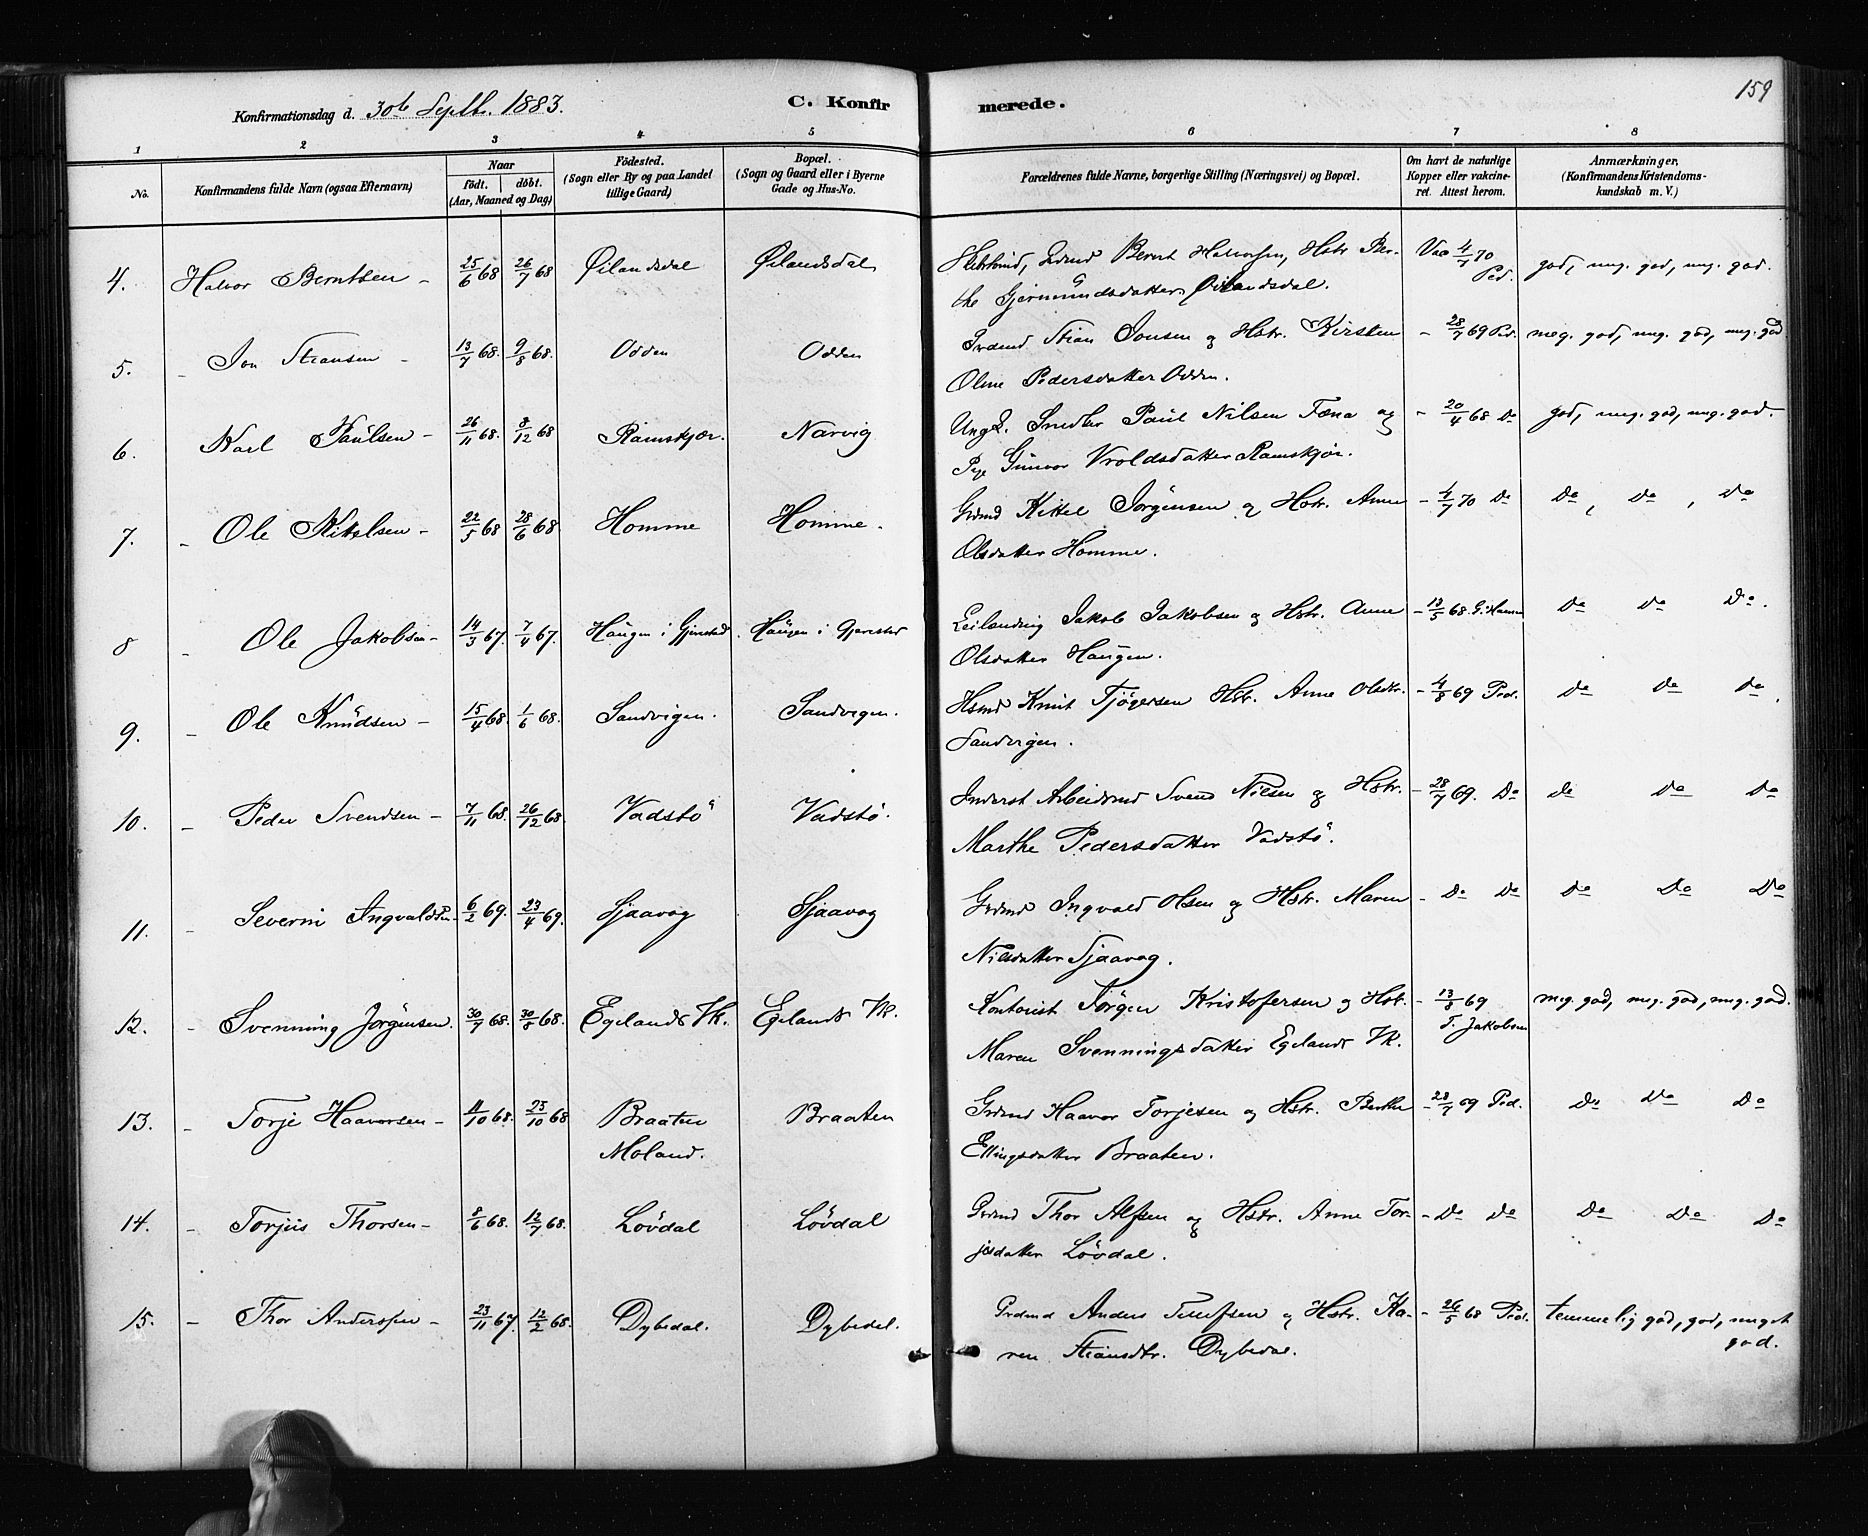 159
Konfirmationsdag d. 30te Septbr. 1883.
C. Konfirmerede.
1 2 3 4 5 6 7 8
No.
Konfirmandens fulde Navn (ogsaa Efternavn)
Naar
födt. döbt.
(Aar, Maaned og Dag)
Födested.
(Sogn eller By og paa Landet
tillige Gaard)
Bopæl.
(Sogn og Gaard eller i Byerne
Gade og Hus-No.
Forældrenes fulde Navne, borgerlige Stilling (Næringsvei) og Bopæl.
Om havt de naturlige
Kopper eller vakcine-
ret. Attest herom.
Anmærkninger,
(Konfirmandens Kristendoms-
kundskab m. V.)
4. Halvor Berntsen - 25/6 68 26/7 68 Øilandsdal Øilandsdal Bernt Halvorsen, Hstr. Ber- Vac 4/7 70 god, meg. god, meg. god.
the Gjermundsdatter Øilandsdal. Ped.
5. - Jon Stiansen - 13/7 68. 9/8 68. Odden Odden Grdmd Stian Jonsen og Hstr. Kirsten - 28/7 69 Ped. meg. god, meg. god, meg. god
Oline Pedersdatter Odden.
6. Karl Paulsen - 26/11 68. 8/12 68 Ramskjær. Narvig Ungk. Smeder Paul Nilsen Fæna og - 20/4 68 Do god, meg. god, meg. god.
Pige Gunvor Vroldsdatter Ramskjør.
7. - Ole Kitelsen - 22/5 68 28/6 68 Homme Homme. Grdmd Kittel Jörgensen og Hstr. Anne - 4/7 70 Do Do, Do, Do
Olsdatter Homme.
8 - Ole Jakobsen - 14/3 67. 7/4 67. Haugen i Gjerestad. Haugen i Gjerestad Leilænding Jakob Jakobsen og Hstr. Anne - 13/5 68. G. Hansen Do Do Do.
Olsdatter Haugen.
9. - Ole Knudsen - 15/4 68. 1/6 68. Sandvigen. Sandvigen. Hsmd Knut Tjögersen Hstr. Anne Olsdtr. - 4/8 69 Ped. Do Do Do
Sandvigen.
10. - Peder Svendsen - 7/11 68. 26/12 68 Vadstö Vadstö. Inderst Arbeidsmd Svend Nilsen og Hstr. - 28/7 69. Do Do Do Do
Marthe Pedersdatter Vadstö.
11. - Severin Ingvaldsen - 6/2 69. 23/4 69. Sjaavaag Sjaavag Grdmd Ingvald Olsen og Hstr. Maren - Do Do Do Do Do
Nilsdatter Sjaavag.
12. - Svenning Jörgensen. 30/7 68. 30/8 68. Egelands Vk. Egelands Vk. Kontorist Jörgen Kristofersen og Hst. - 13/8 69 meg. god, meg. god, meg. god.
Maren Svenningsdatter Egelands Vk. T. Jakobsen
13. - Torje Haavorsen - 4/10 68. 25/10 68 Braaten Braaten Grdmd Haavor Torjesen og Hstr. Berthe - 28/7 69 Ped. Do Do Do
Moland. Ellingsdatter Braaten.
14. - Torjus Thorsen - 8/6 68. 12/7 68. Lövdal Lövdal Grdmd Thor Alfsen og Hstr. Anne Tor- - Do Do Do Do Do
jesdatter Lövdal.
15. - Thor Andersen - 23/11 67. 12/2 68. Dybedal. Dybedal. Grdmd Anders Tellefsen og Hstr. Ka- - 26/5 68 Ped. temmelig god, god, meget
ren Stiansdtr. Dybedal. god.